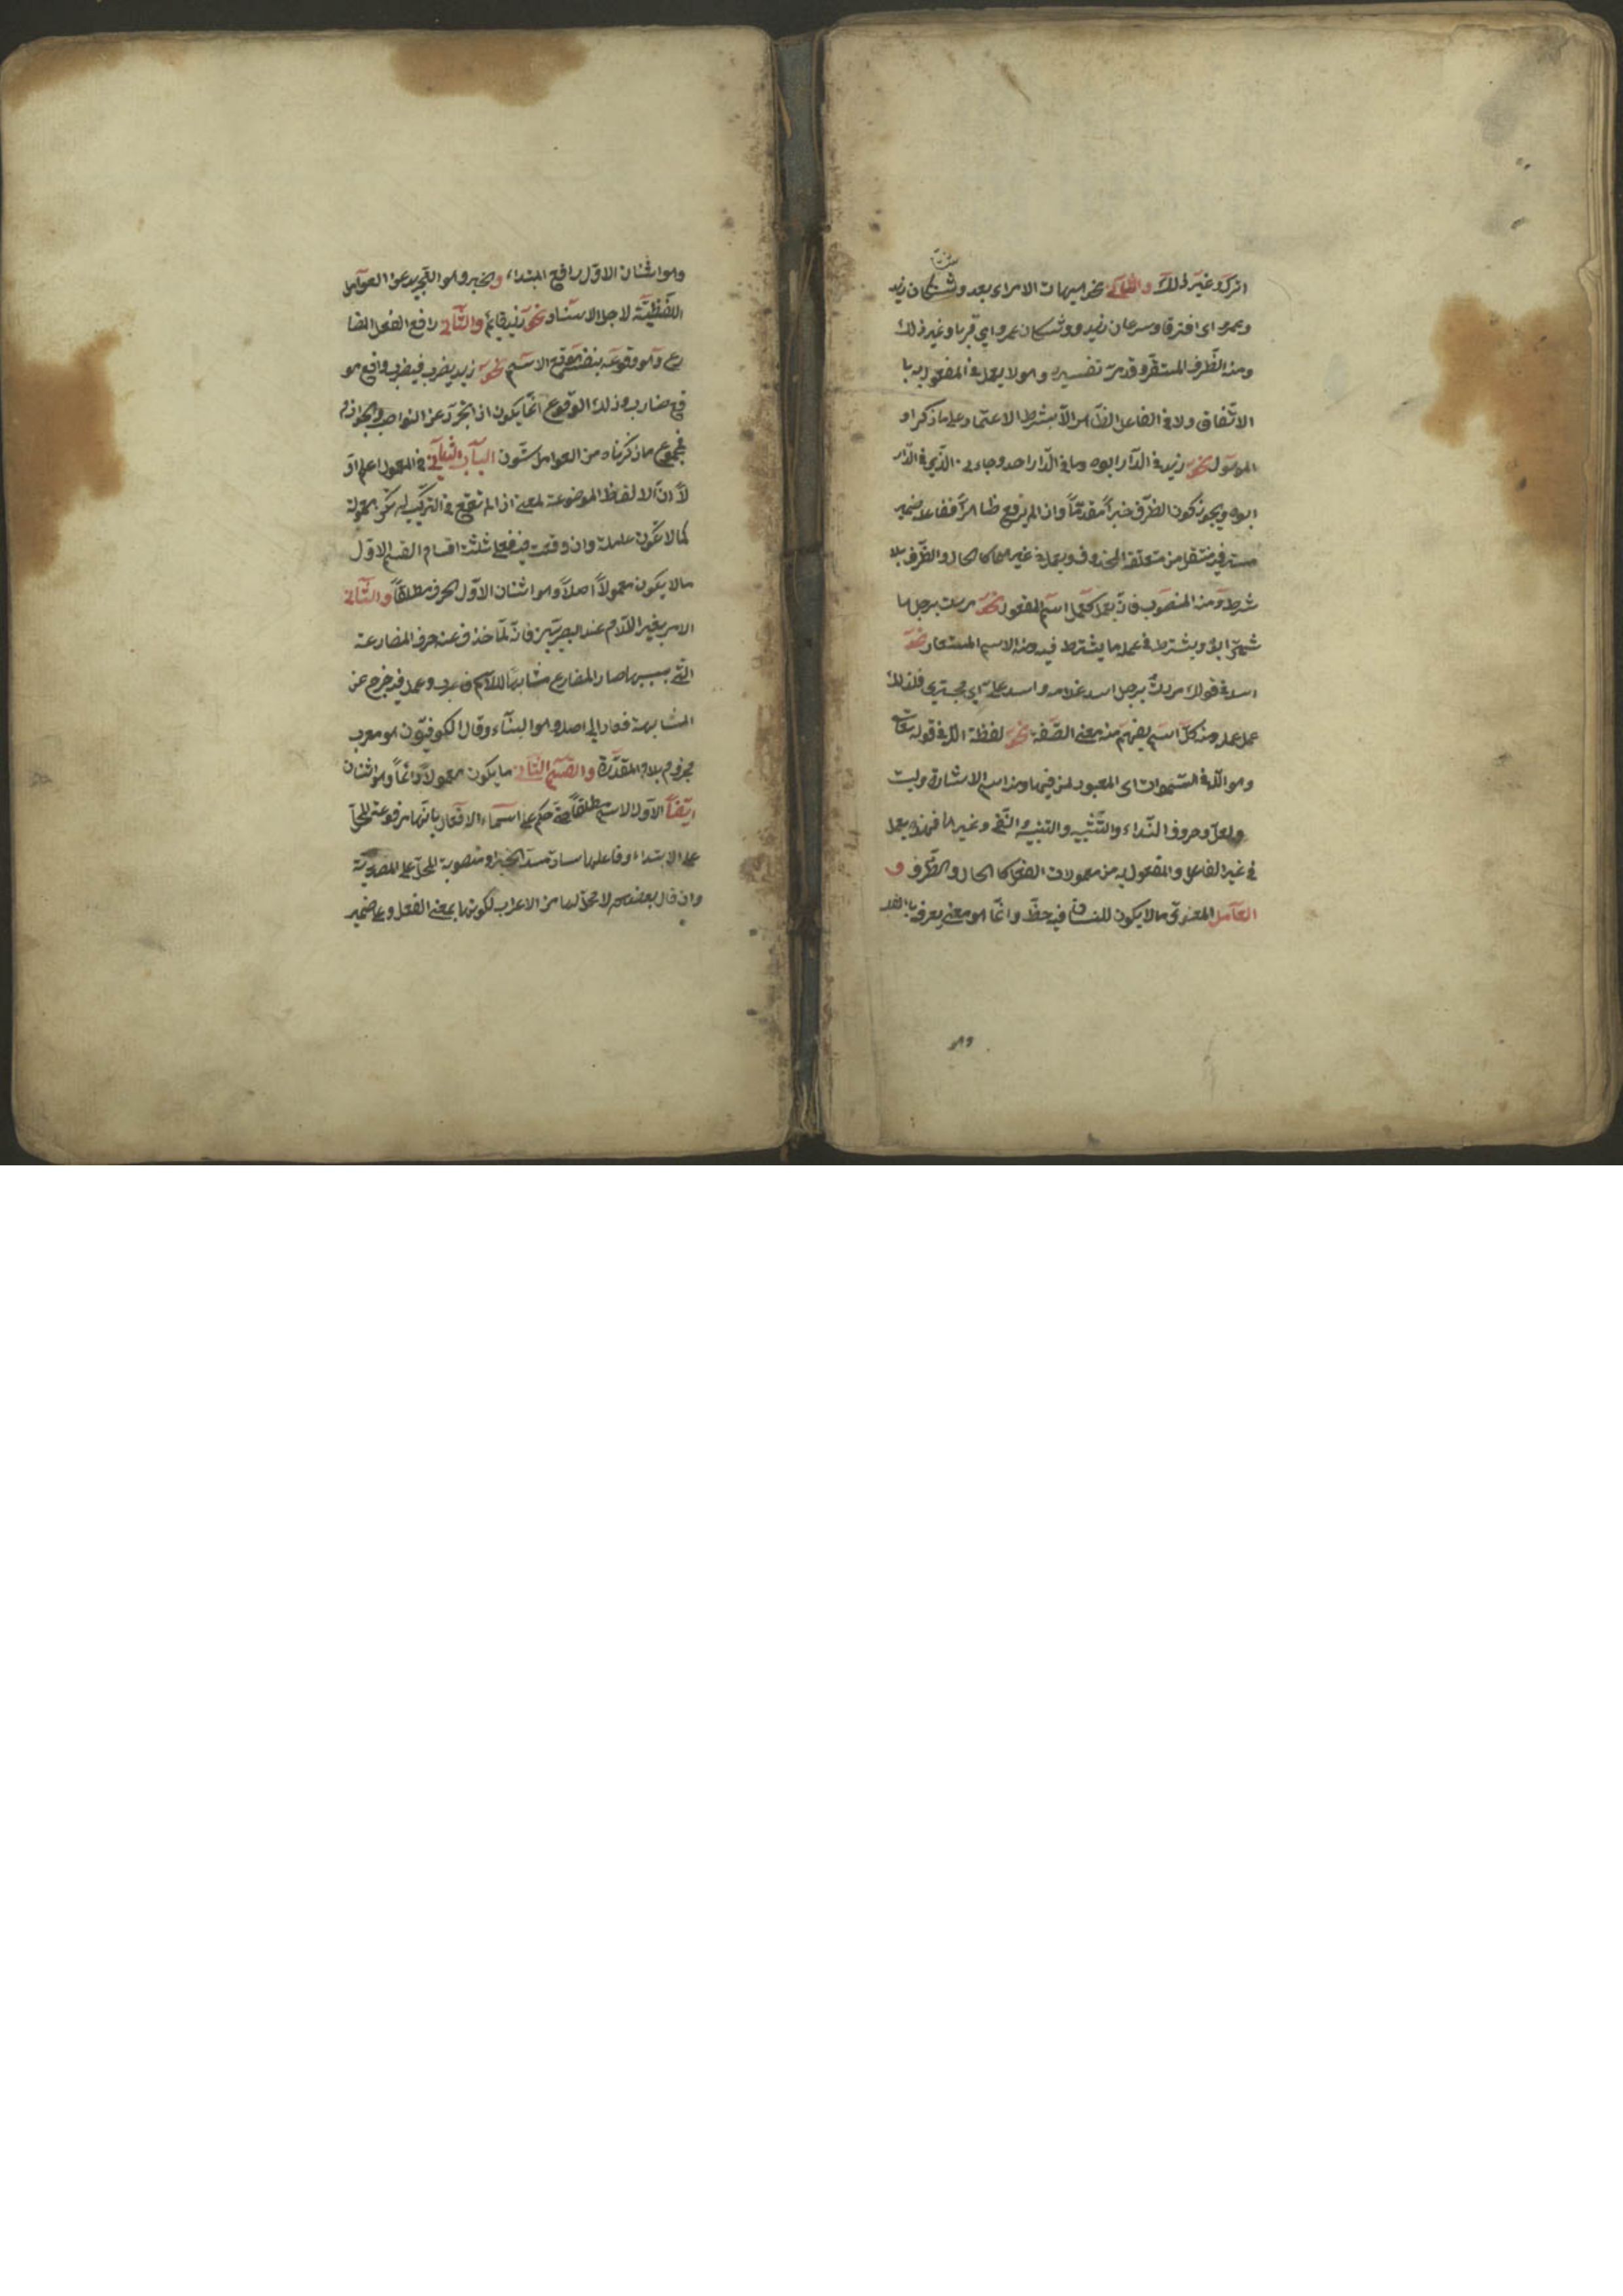 اترك وغير ذلك والثاني نحو هيهات الامر اى بعد وشتان زيد
وعمرو اى افترقا وسرعان زيد ووشكان عمرو اى قربا وغير ذلك
ومنه الظرف المستقر وقد مر تفسيره وهو لا يعمل فى المفعول به با
الاتفاق ولا فى الفاعل الظاهر الا بشرط الاعتماد على ما ذكر او
الموصول نحو زيد فى الدار ابوه وما فى الدار احد وجاءنى الذى فى الدار
ابوه ويجوز كون الظرف خبرا مقدما واذا لم يرفع ظاهرا ففاعله ضمير
مستتر فيه منتقل من متعلقه المحذوف ويعمل فى غيرهما كالحال والظرف بلا
شرط ومنه المنصوب فانه يعمل كعمل اسم المفعول نحو مررت برجل ها
شمى ابوه ويشترط فى عمله ما يشترط فيه ومنه الاسم المستعار نحو
اسد فى قولك مررت برجل اسد غلامه واسد على اى مجترى فلذلك
عمل عمله ومنه كل اسم يفهم منه معنى الصفة نحو لفظة الله فى قوله تعالى
وهو الله فى السموات اى المعبود لمن فيها ومنه اسم الاشارة وليت
ولعل وحروف النداء والتشبيه والتنبيه والنفى وغيرها فهذه يعمل
فى غير الفاعل والمفعول به من معمولات الفعل كالحال والظرف و
العامل المعنوى ما لا يكون للسان فيه حظ وانما هو معنى يعرف بالقلب
وهو اثنان الاول رافع المبتداء والخبر وهو التجريد عن العوامل
اللفظية لاجل الاسناد نحو زيد قائم والثانى رافع الفعل المضا
رع وهو وقوعه بنفسه موقع الاسم نحو زيد يضرب فيضرب واقع مو
قع ضارب وذلك الوقوع انما يكون اذا تجرد عن النواصب والجوازم
فمجموع ما ذكرناه من العوامل ستون الباب الثانى فى المعمول اعلم او
لا ان الالفاظ الموضوعة لمعنى اذا لم تقع فى التركيب لم تكن معمولة
كما لا تكون عاملة وان وقعت فيه فعلى ثلثة اقسام القسم الاول
ما لا يكون معمولا اصلا وهو اثنان الاول الحرف مطلقا والثانى
الامر بغير اللام عند البصريين فانه لما حذف عنه حرف المضارعة
التى بسببها صار المضارع مشابها للاسم فاعرب وعمل فيه خرج عن
المشابهة فعاد الى اصله وهو البناء وقال الكوفيون هو معرب
مجزوم بلام المقدرة والقسم الثانى ما يكون معمولا دائما وهو اثنان
ايضا الاول الاسم مطلقا حتى حكم على اسماء الافعال بانها مرفوعة المحل
على الابتداء وفاعلها ساد مسد الخبر او منصوبة المحل على المصدرية
وان قال بعضهم لا محل لها من الاعراب لكونها بمعنى الفعل وعلى ضمير